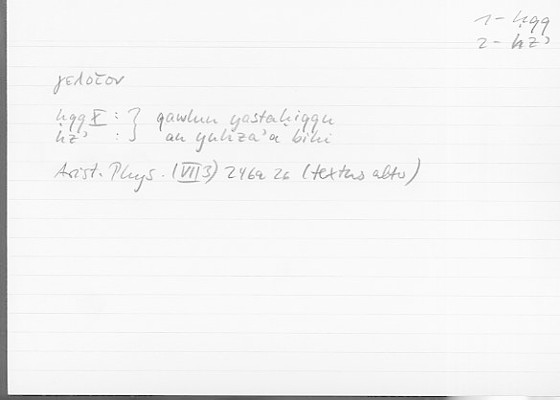 1 – ḥqq
2 – hzʾ
γελοῖον
ḥqq X : } qawlun yastaḥiqqu
hzʾ : } an yuhzaʾa bihi
Arist. Phys. (VII 3) 246a 26 (textus alter)